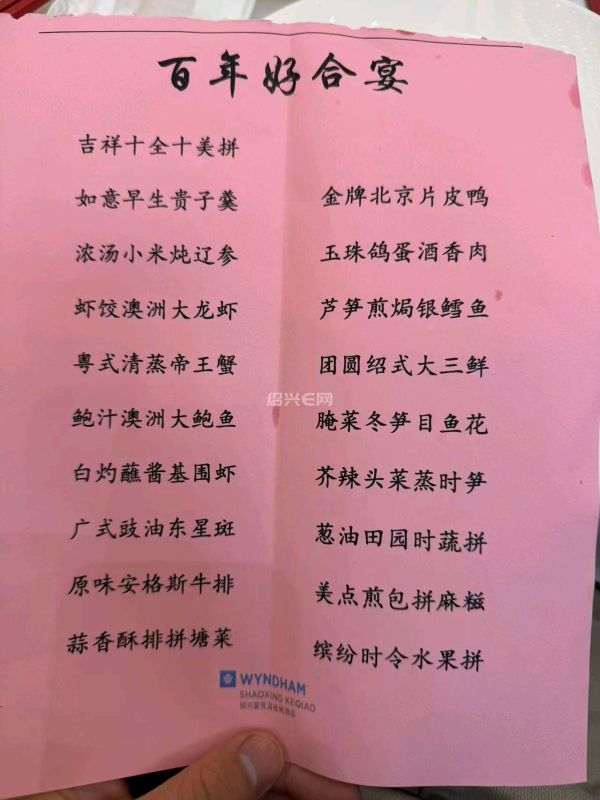 百年好合宴
吉祥十全十美拼
如意早生贵子羹
浓汤小米炖辽参
虾饺澳洲大龙虾
粤式清蒸帝王蟹
鲍汁澳洲大鲍鱼
白灼蘸酱基围虾
广式豉油东星斑
原味安格斯牛排
蒜香酥排拼塘菜
金牌北京片皮鸭
玉珠鸽蛋酒香肉
芦笋煎焗银鳕鱼
团圆绍式大三鲜
腌菜冬笋目鱼花
芥辣头菜蒸时笋
葱油田园时蔬拼
美点煎包拼麻糍
缤纷时令水果拼
绍兴E网
WYNDHAM
SHAOXING KEQIAO